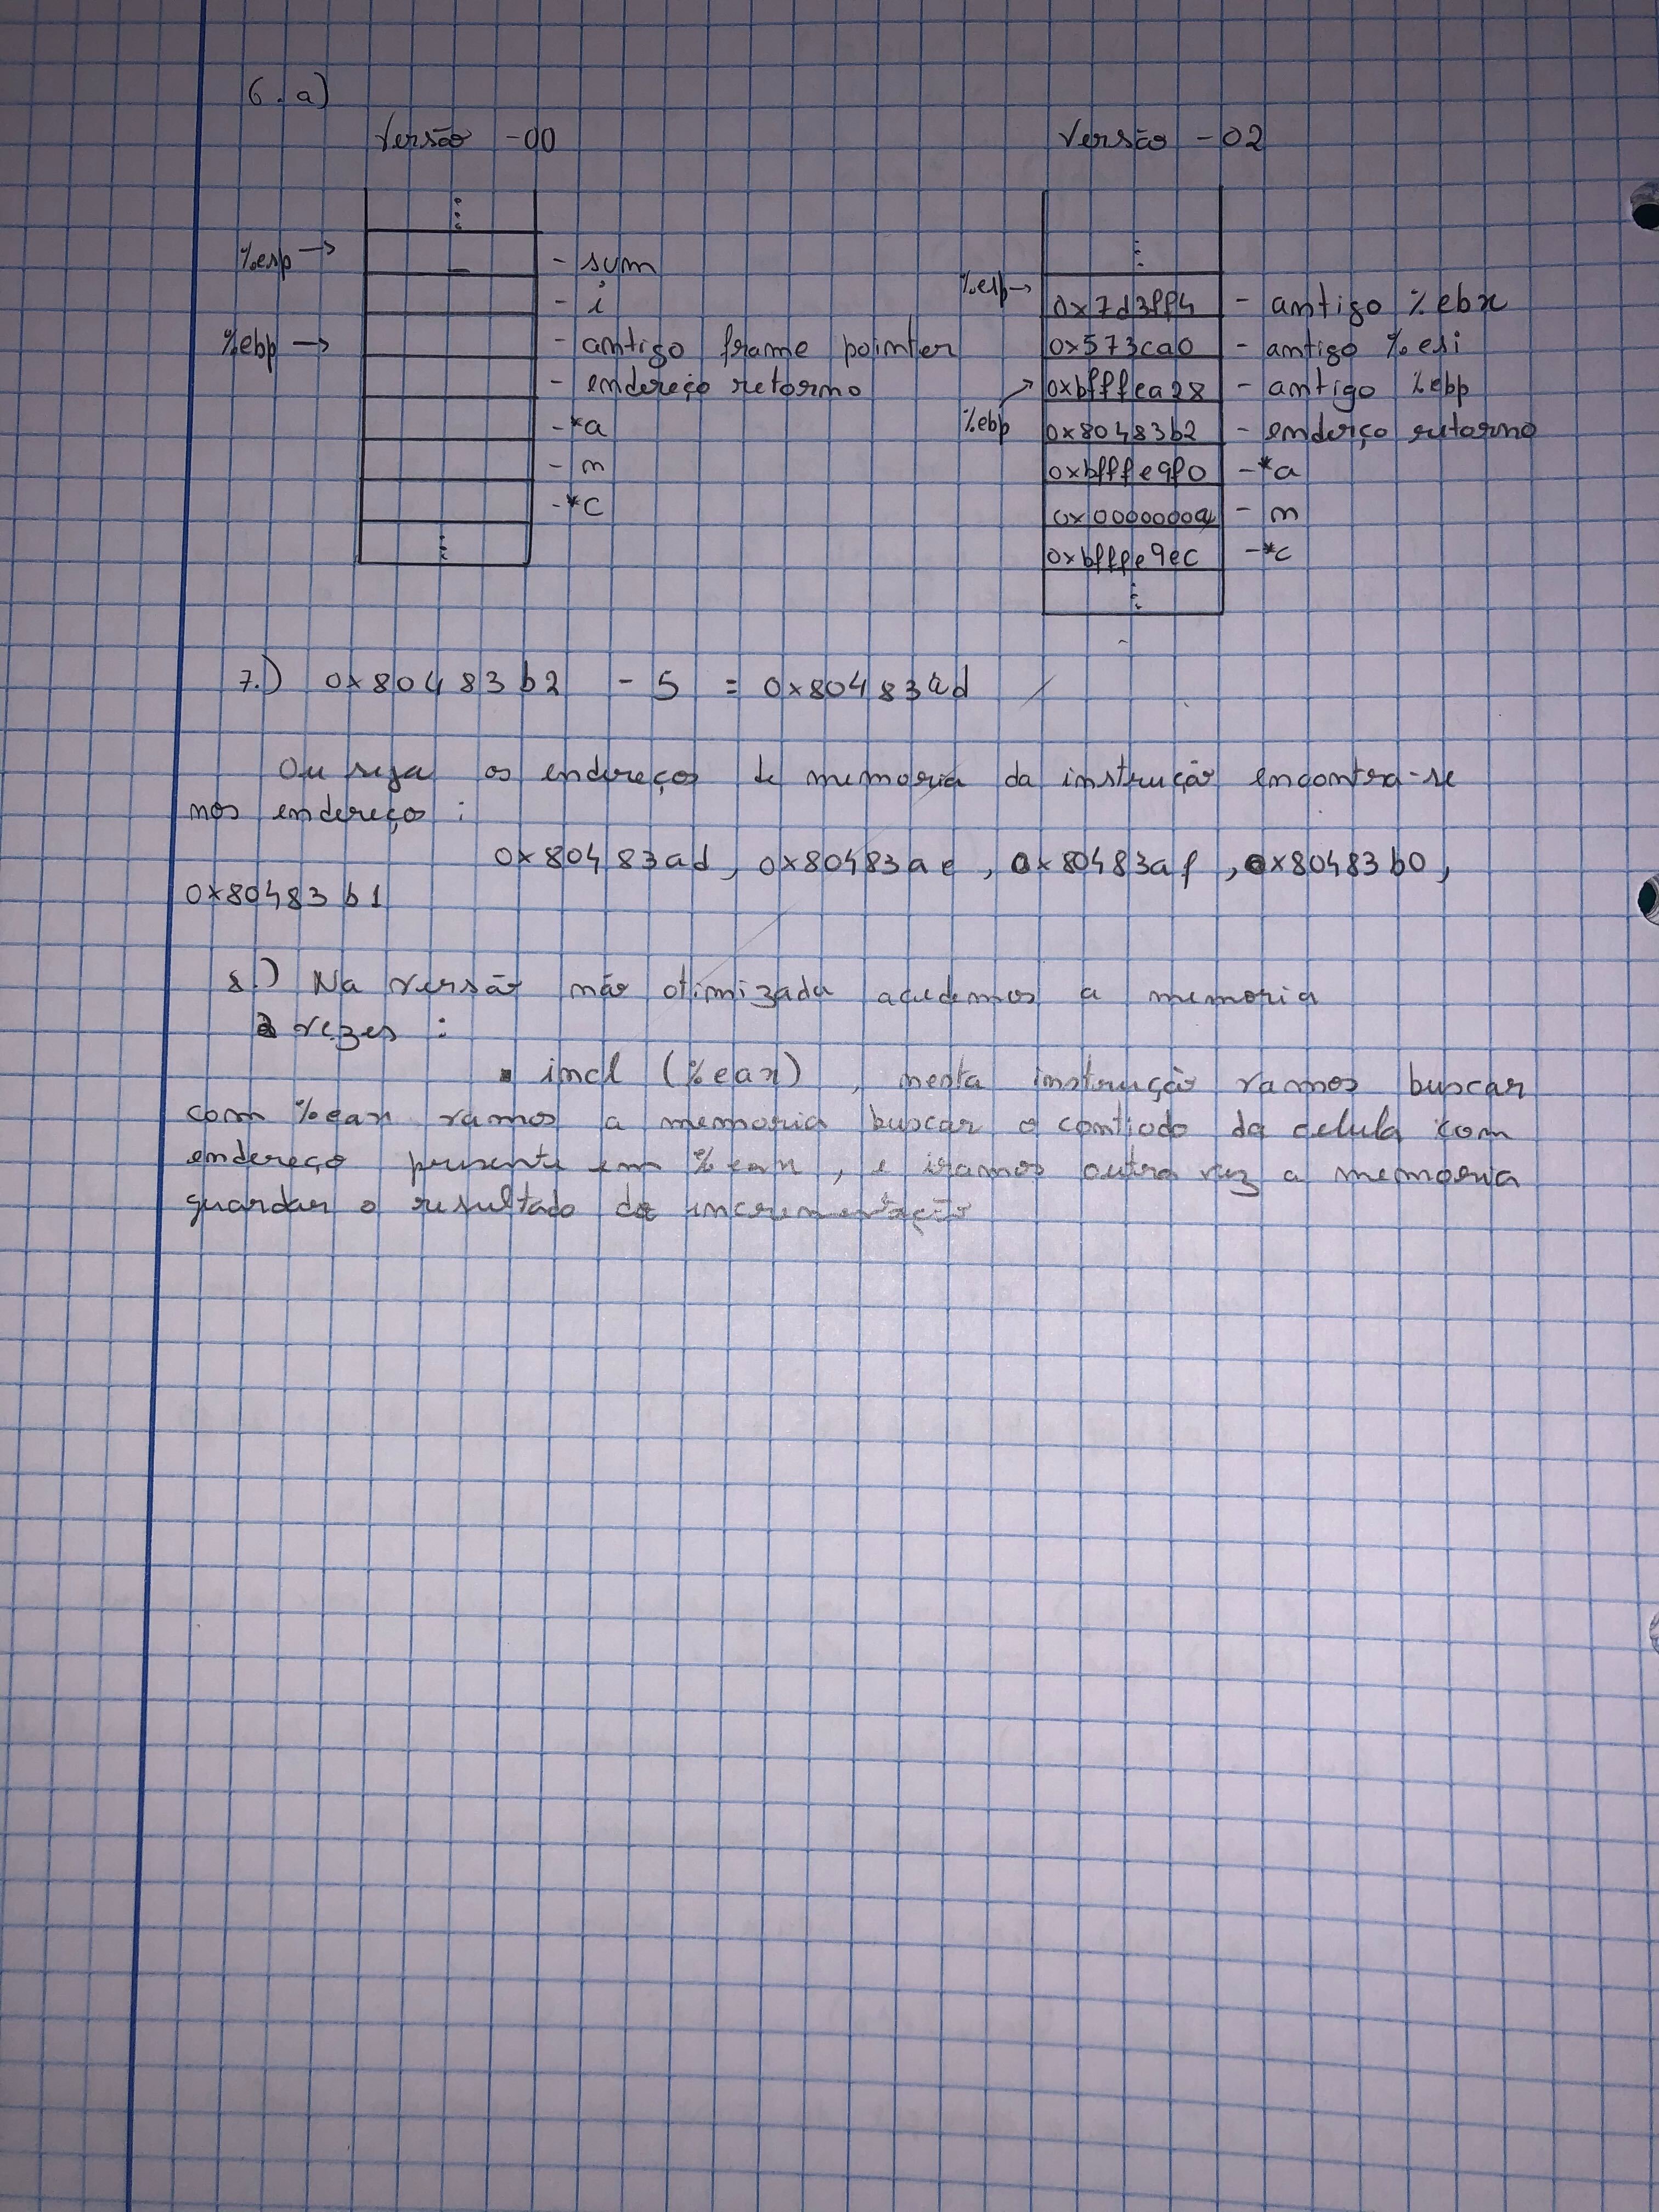 6. a)
Versão -O0
Versão -O2
%esp →
- sum
- i
%ebp →
- antigo frame pointer
- endereço retorno
- *a
- n
- *c
%esp →
0x7d3ff4 - antigo %ebx
0x573ca0 - antigo %esi
0xbfffea28 - antigo %ebp
%ebp
0x80483b2 - enderço retorno
0xbfffe9f0 - *a
0x0000000a - n
0xbfffe9ec - *c
7.) 0x80483b2 - 5 = 0x80483ad
Ou seja os endereços de memoria da instrução encontra-se
nos endereço :
0x80483ad, 0x80483ae, 0x80483af, 0x80483b0,
0x80483b1
8.) Na versão não otimizada acedemos a memoria
2 vezes :
▪ incl (%eax), nesta instrução vamos buscar
com %eax vamos a memoria buscar o contiodo da celula com
endereço presente em %eax, e iramos outra vez a memoria
guardar o resultado da incrementação